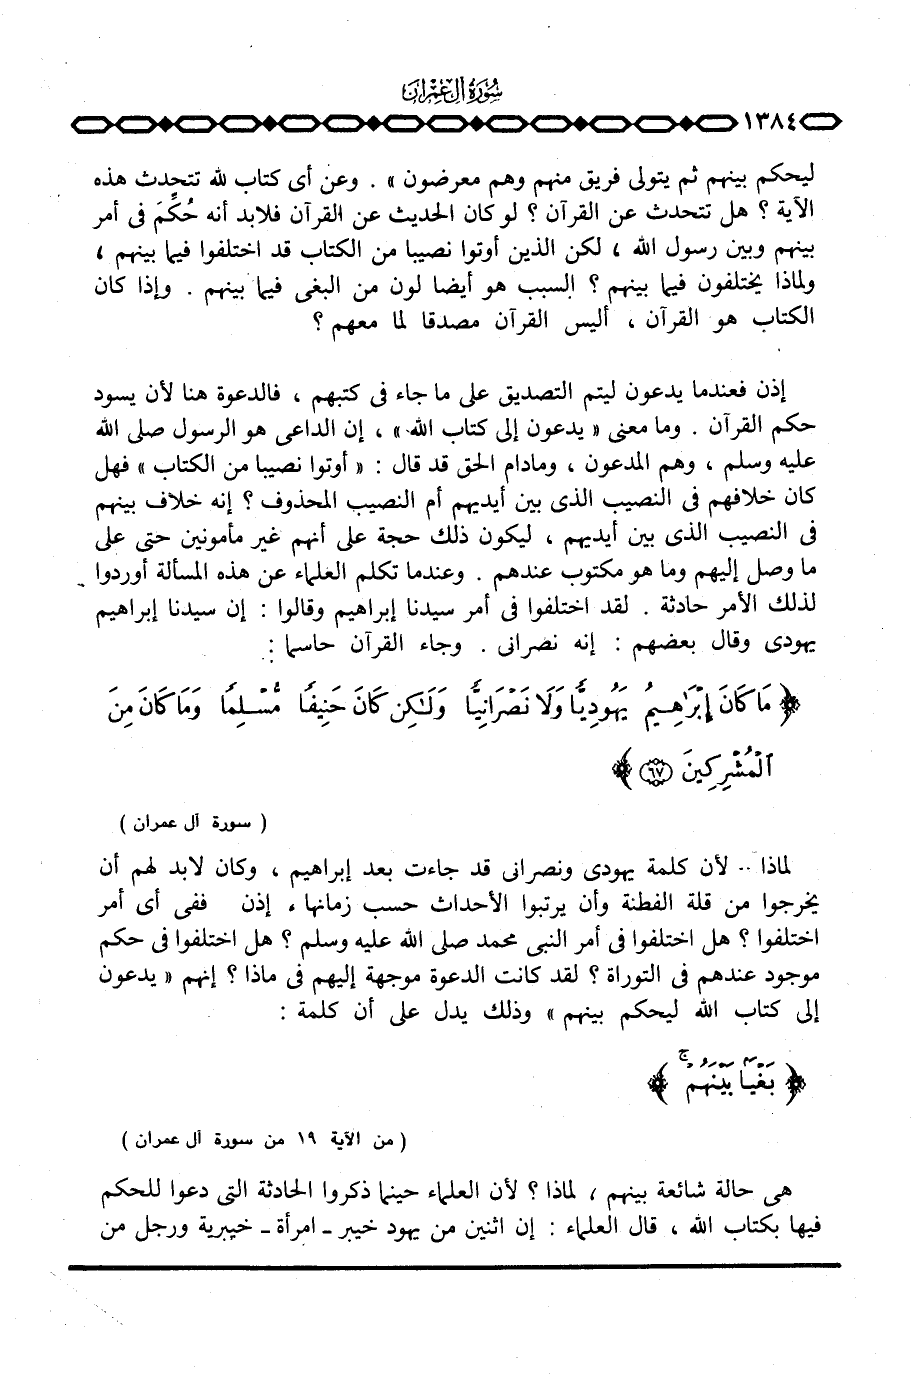 سورة آل عمران
١٣٨٤
ليحكم بينهم ثم يتولى فريق منهم وهم معرضون » . وعن أى كتاب لله تتحدث هذه
الآية ؟ هل تتحدث عن القرآن ؟ لو كان الحديث عن القرآن فلابد أنه حُكِّمَ فى أمر
بينهم وبين رسول الله ، لكن الذين أوتوا نصيبا من الكتاب قد اختلفوا فيما بينهم ،
ولماذا يختلفون فيما بينهم ؟ السبب هو أيضا لون من البغى فيما بينهم . وإذا كان
الكتاب هو القرآن ، أليس القرآن مصدقا لما معهم ؟
إذن فعندما يدعون ليتم التصديق على ما جاء فى كتبهم ، فالدعوة هنا لأن يسود
حكم القرآن . وما معنى « يدعون إلى كتاب الله » ، إن الداعى هو الرسول صلى الله
عليه وسلم ، وهم المدعون ، ومادام الحق قد قال : « أوتوا نصيبا من الكتاب » فهل
كان خلافهم فى النصيب الذى بين أيديهم أم النصيب المحذوف ؟ إنه خلاف بينهم
فى النصيب الذى بين أيديهم ، ليكون ذلك حجة على أنهم غير مأمونين حتى على
ما وصل إليهم وما هو مكتوب عندهم . وعندما تكلم العلماء عن هذه المسألة أوردوا
لذلك الأمر حادثة . لقد اختلفوا فى أمر سيدنا إبراهيم وقالوا : إن سيدنا إبراهيم
يهودى وقال بعضهم : إنه نصرانى . وجاء القرآن حاسما :
﴿ مَا كَانَ إِبْرَٰهِيمُ يَهُودِيًّا وَلَا نَصْرَانِيًّا وَلَٰكِن كَانَ حَنِيفًا مُّسْلِمًا وَمَا كَانَ مِنَ
الْمُشْرِكِينَ ٦٧ ﴾
( سورة آل عمران )
لماذا .. لأن كلمة يهودى ونصرانى قد جاءت بعد إبراهيم ، وكان لابد لهم أن
يخرجوا من قلة الفطنة وأن يرتبوا الأحداث حسب زمانها ، إذن ففى أى أمر
اختلفوا ؟ هل اختلفوا فى أمر النبى محمد صلى الله عليه وسلم ؟ هل اختلفوا فى حكم
موجود عندهم فى التوراة ؟ لقد كانت الدعوة موجهة إليهم فى ماذا ؟ إنهم « يدعون
إلى كتاب الله ليحكم بينهم » وذلك يدل على أن كلمة :
﴿ بَغْيًا بَيْنَهُمْ ۚ ﴾
( من الآية ١٩ من سورة آل عمران )
هى حالة شائعة بينهم ، لماذا ؟ لأن العلماء حينما ذكروا الحادثة التى دعوا للحكم
فيها بكتاب الله ، قال العلماء : إن اثنين من يهود خيبر ـ امرأة ـ خيبرية ورجل من